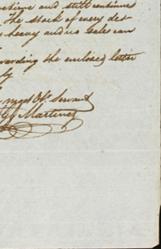 and still continues
The stock of every des
heavy and no sales can
warding the enclosed letter
ly
Servant
Martinez